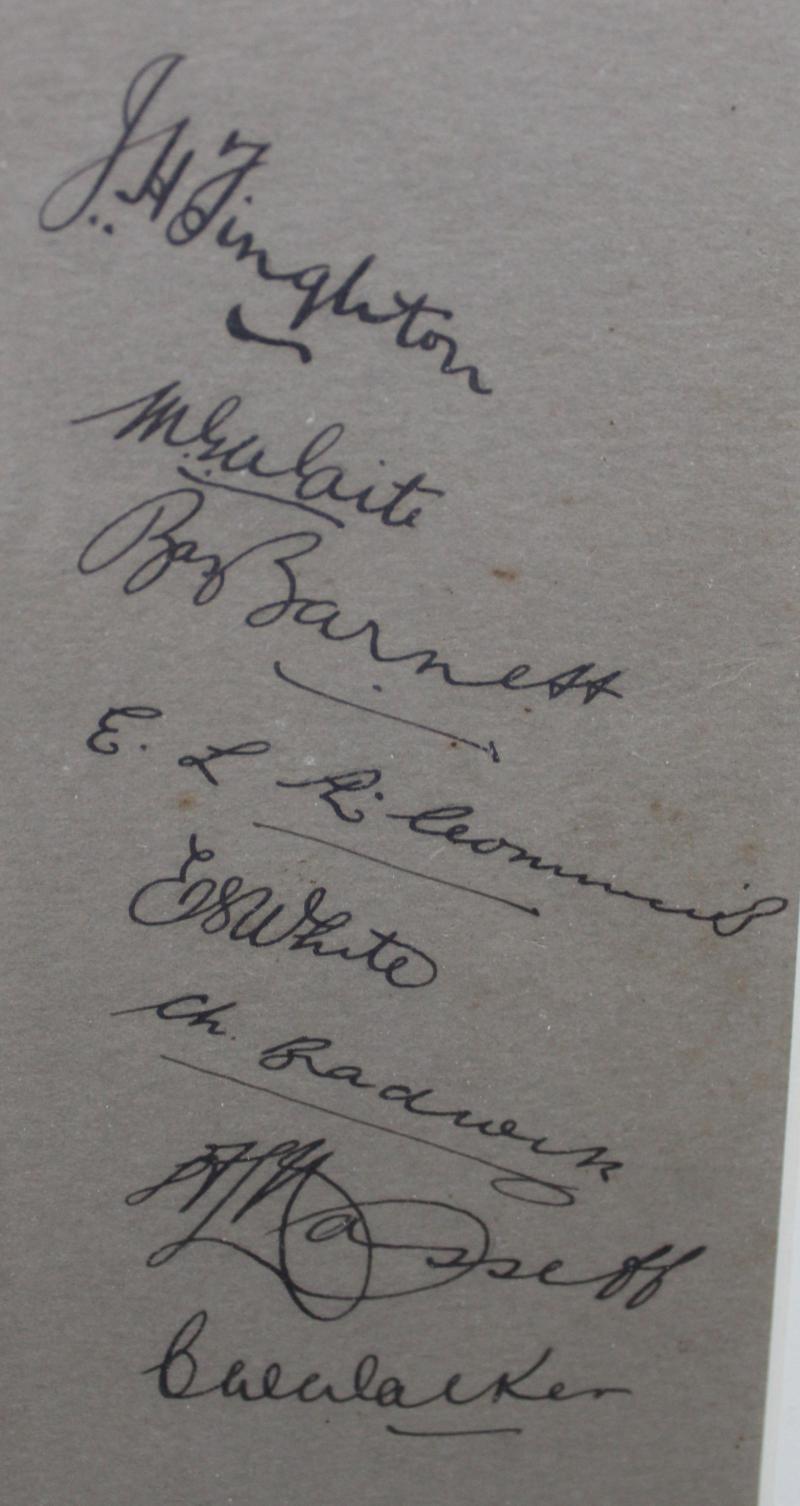 J.H Fingleton
M.G. Waite
B.A. Barnett
E. L. Mc Cormick
E S White
C.L. Badcock
A L Hassett
C W Walker